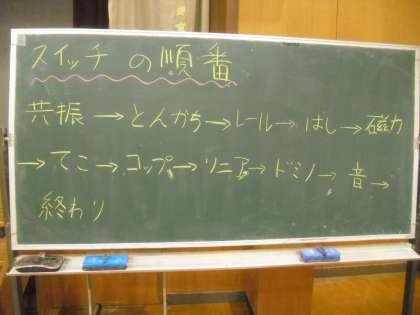 スイッチの順番
共振→とんかち→レール→はし→磁力
→てこ→コップ→リニア→ドミノ→音→
終わり